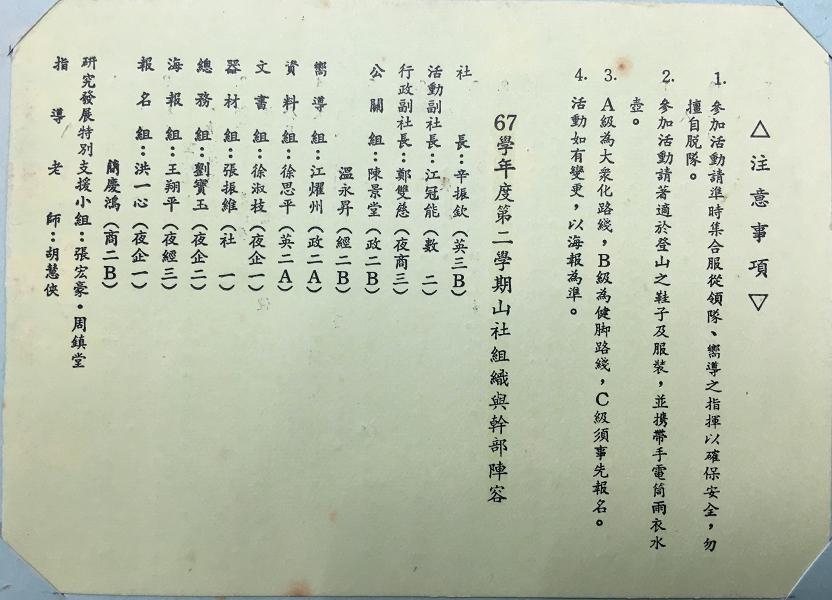 △注意事項▽
1. 參加活動請準時集合服從領隊、嚮導之指揮以確保安全，勿
擅自脫隊。
2. 參加活動請著適於登山之鞋子及服裝，並携帶手電筒雨衣水
壺。
3. A級為大衆化路綫，B級為健脚路綫，C級須事先報名。
4. 活動如有變更，以海報為準。
67學年度第二學期山社組織與幹部陣容
社長：辛振欽（英三B）
活動副社長：江冠能（数二）
行政副社長：鄭雙慈（夜商三）
公關組：陳景堂（政二B）
溫永昇（經二B）
嚮導組：江燿州（政二A）
資料組：徐思平（英二A）
文書組：徐淑枝（夜企一）
器材組：張振維（社一）
總務組：劉寶玉（夜企二）
海報組：王翔平（夜經三）
報名組：洪一心（夜企一）
簡慶鴻（商二B）
研究發展特別支援小組：張宏豪・周鎮堂
指導老師：胡慧俠